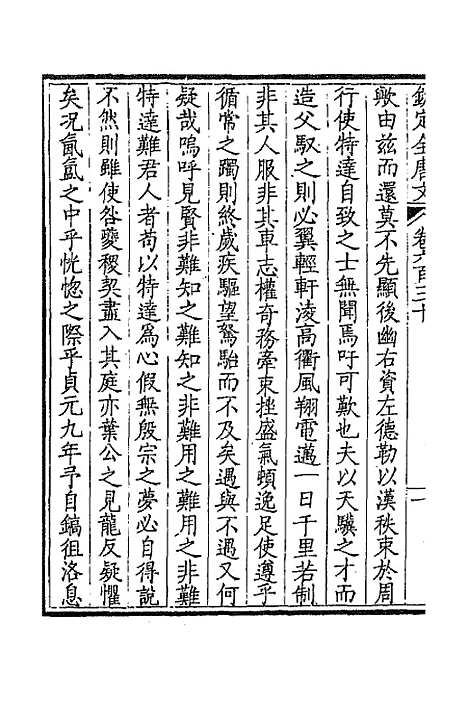 欽定全唐文 卷六百三十 一
歟由茲而還莫不先顯後幽右資左德勒以漢秩束於周
行使特達自致之士無聞焉吁可歎也夫以天驥之才而
造父馭之則必翼輕軒淩高衢風翔電邁一日千里若制
非其人服非其車志權奇務牽束挫盛氣頓逸足使遵乎
循常之躅則終歲疾驅望駑駘而不及矣遇與不遇又何
疑哉嗚呼見賢非難知之難知之非難用之難用之非難
特達難君人者苟以特達為心假無殷宗之夢必自得說
不然則雖使咎夔稷契盡入其庭亦葉公之見龍反疑懼
矣況氤氳之中乎恍惚之際乎貞元九年予自鎬徂洛息